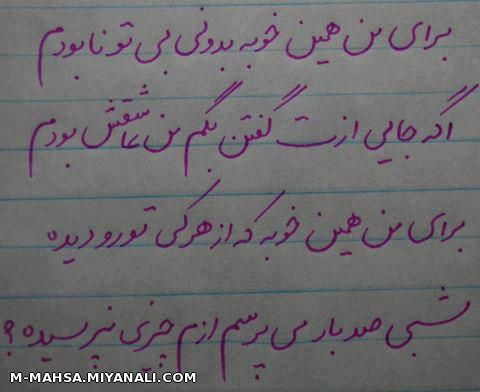 برای من همین خوبه بدونی بی تو نابودم
اگه جایی ازت گفتن بگم من عاشقش بودم
برای من همین خوبه که از هرکی تورو دیده
شبی صد بار می پرسم ازم چیزی نپرسیده؟
M-MAHSA.MIYANALI.COM